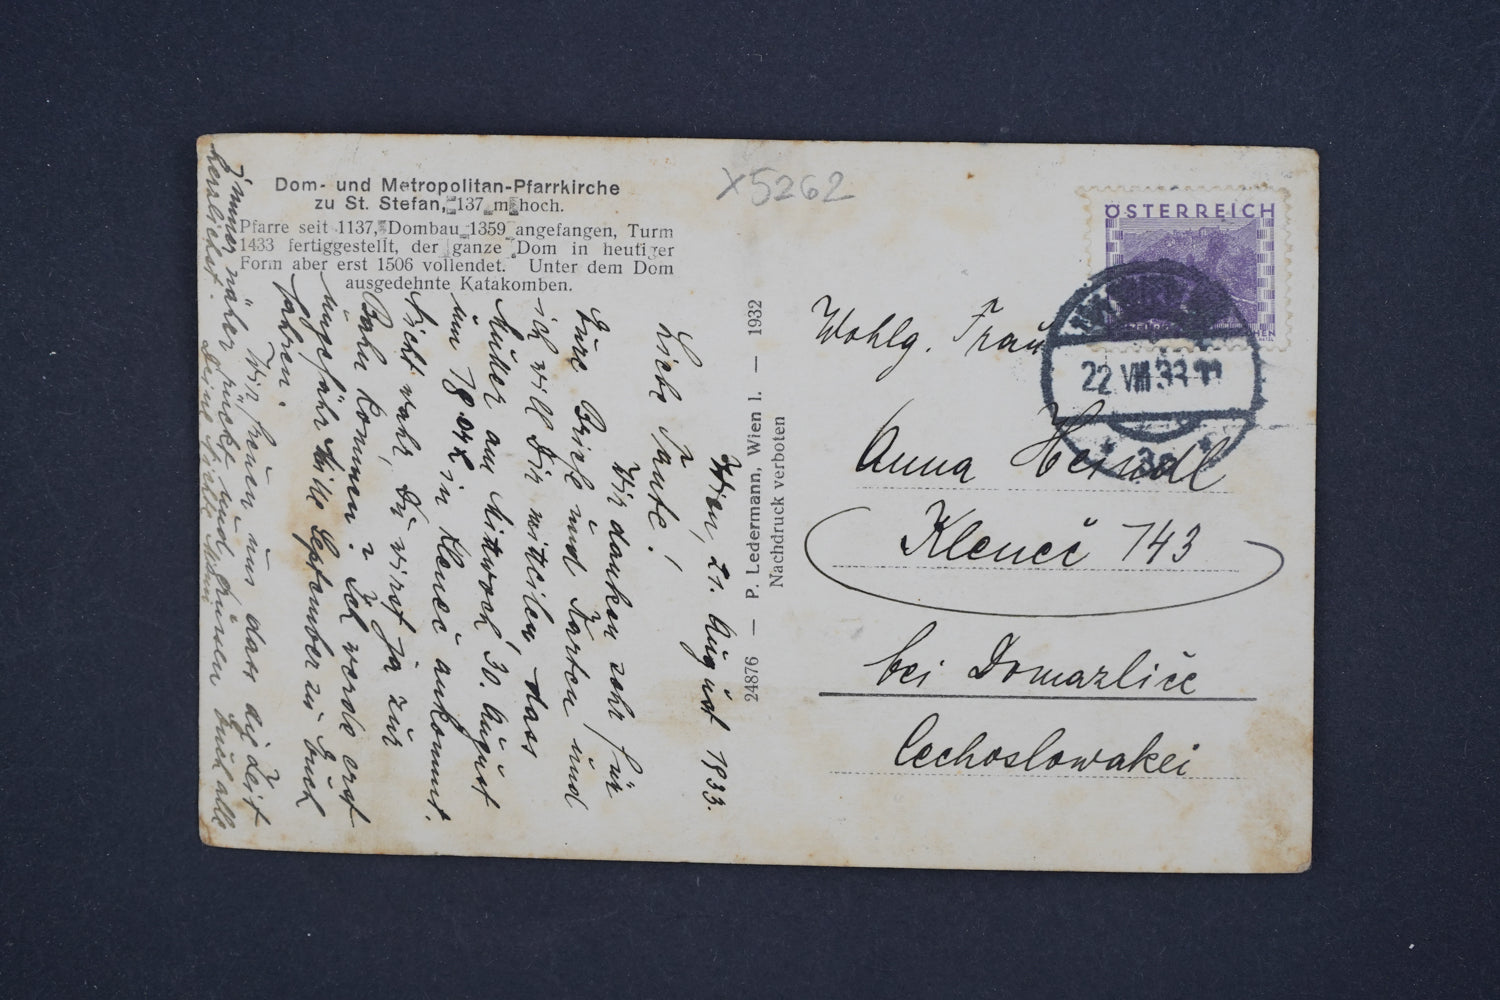 Dom- und Metropolitan-Pfarrkirche
zu St. Stefan, 137 m hoch.
Pfarre seit 1137, Dombau 1359 angefangen, Turm
1433 fertiggestellt, der ganze Dom in heutiger
Form aber erst 1506 vollendet. Unter dem Dom
ausgedehnte Katakomben.
Wien, 21. August 1933.
Liebe Tante!
Wir danken sehr für
Eure Briefe und Karten und
ich will Dir mitteilen, dass
Mutter am Mittwoch 30. August
um 18.04 h in Klenec ankommt.
Nicht wahr, Du wirst ja zur
Bahn kommen? Ich werde erst
ungefähr Mitte September zu Euch
fahren.
Wir freuen uns dass die Zeit
immer näher rückt und grüssen Euch alle
herzlichst.
24876 — P. Ledermann, Wien I. — 1932
Nachdruck verboten
X5262
ÖSTERREICH
22 VIII 33
3a
Wohlg. Frau
Anna Heindl
Klenec 743
bei Domazlice
Cechoslowakei